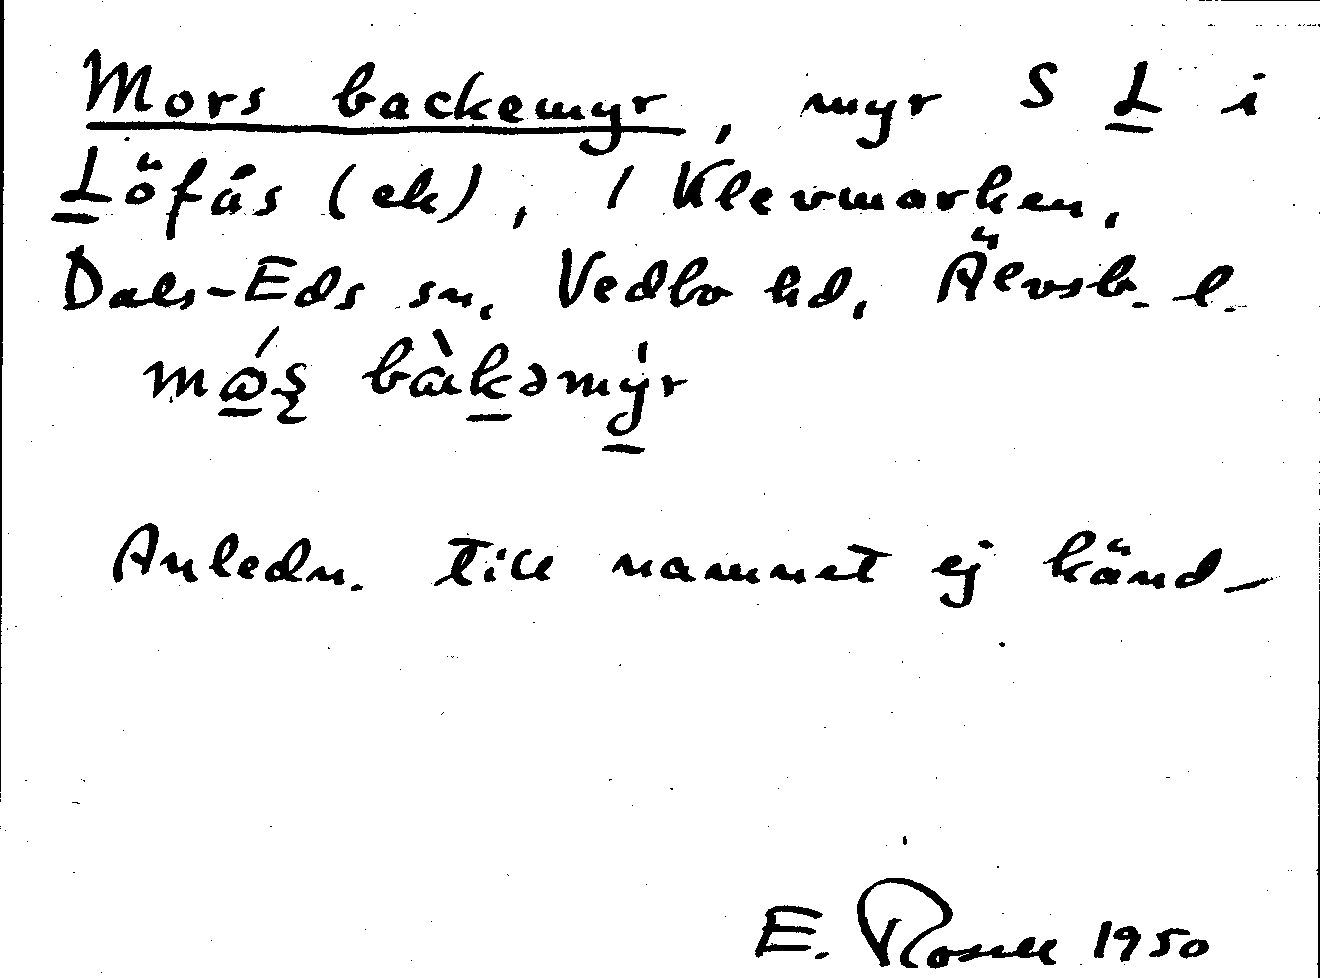 Mors backemyr, myr S L i
Löfås (ek), / Klevmarken,
Dals-Eds sn, Vedbo hd, Älvsb. l.
bàkəmýr
Anledn. till namnet ej känd_
E. Rosell 1950